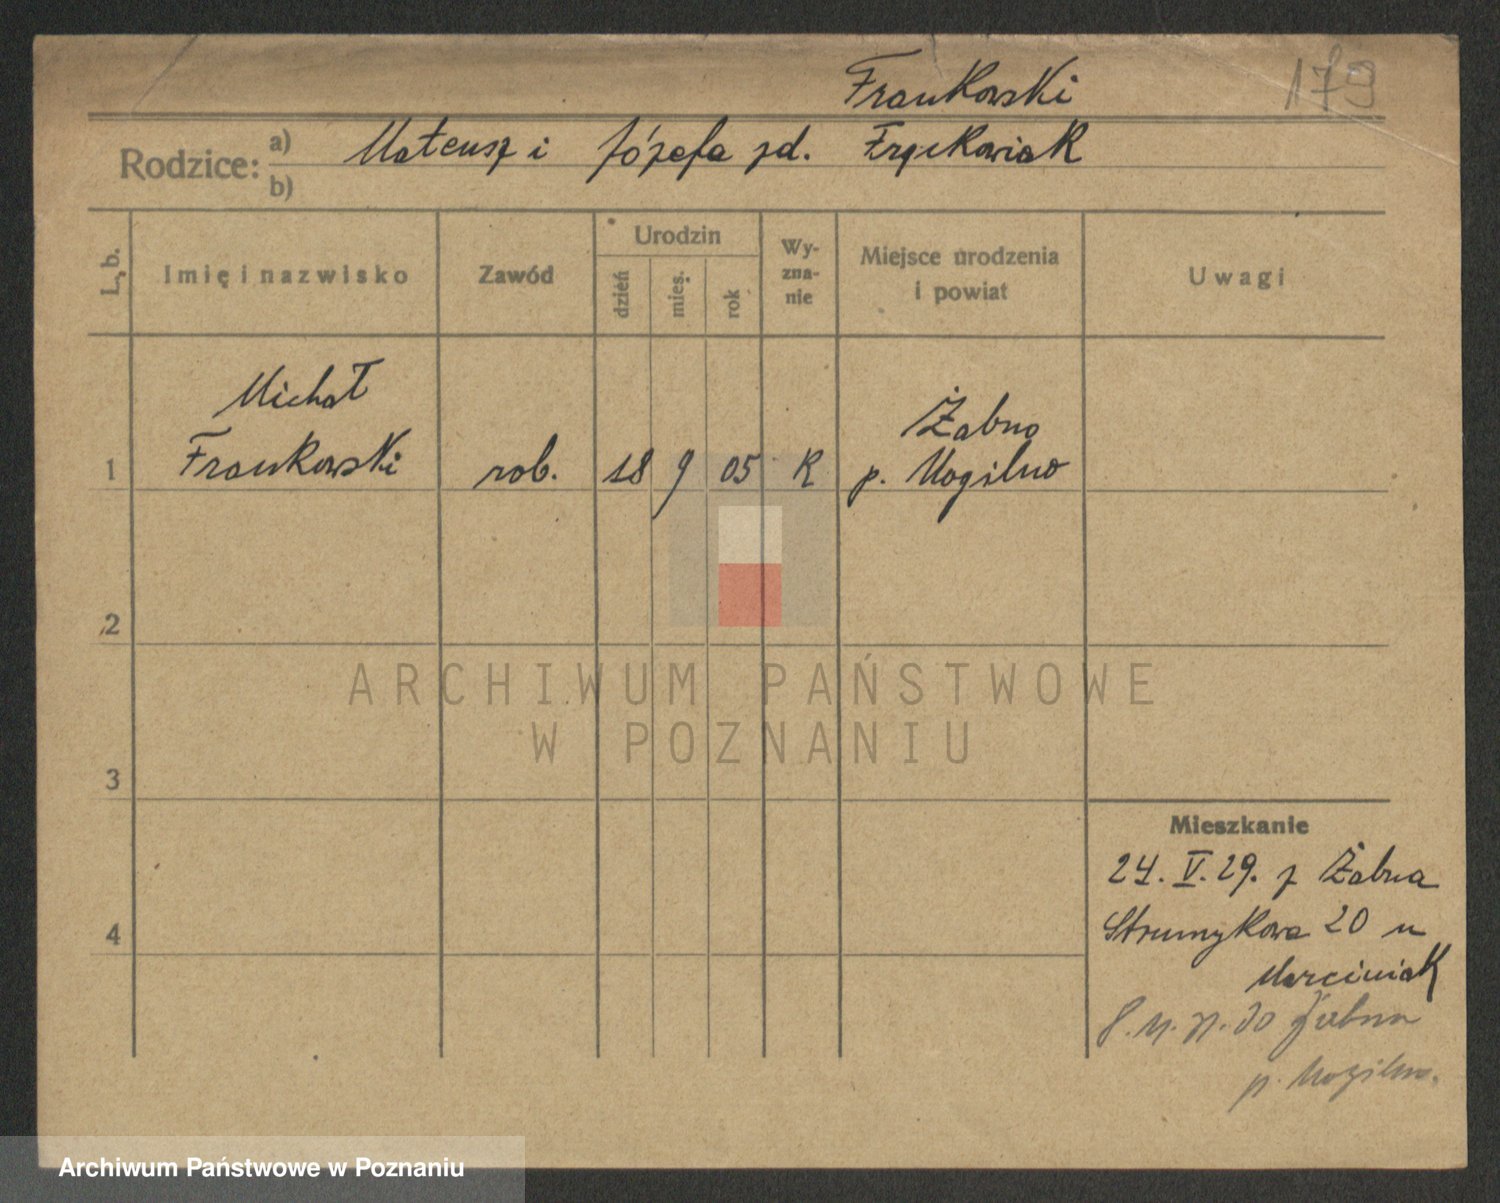 Frankowski
179
Rodzice: a) Mateusz i Józefa zd. Frąckowiak
b)
L. b.
Imię i nazwisko
Zawód
Urodzin
dzień
mies.
rok
Wy-
zna-
nie
Miejsce urodzenia
i powiat
Uwagi
Michał
Frankowski
Żabno
1 rob. 18 9 05 R p. Mogilno
2
3
4
Mieszkanie
24. V. 29. z Żabna
Strumykowa 20 u
Marciniak
do Żabna
p. Mogilno.
ARCHIWUM PAŃSTWOWE
W POZNANIU
Archiwum Państwowe w Poznaniu